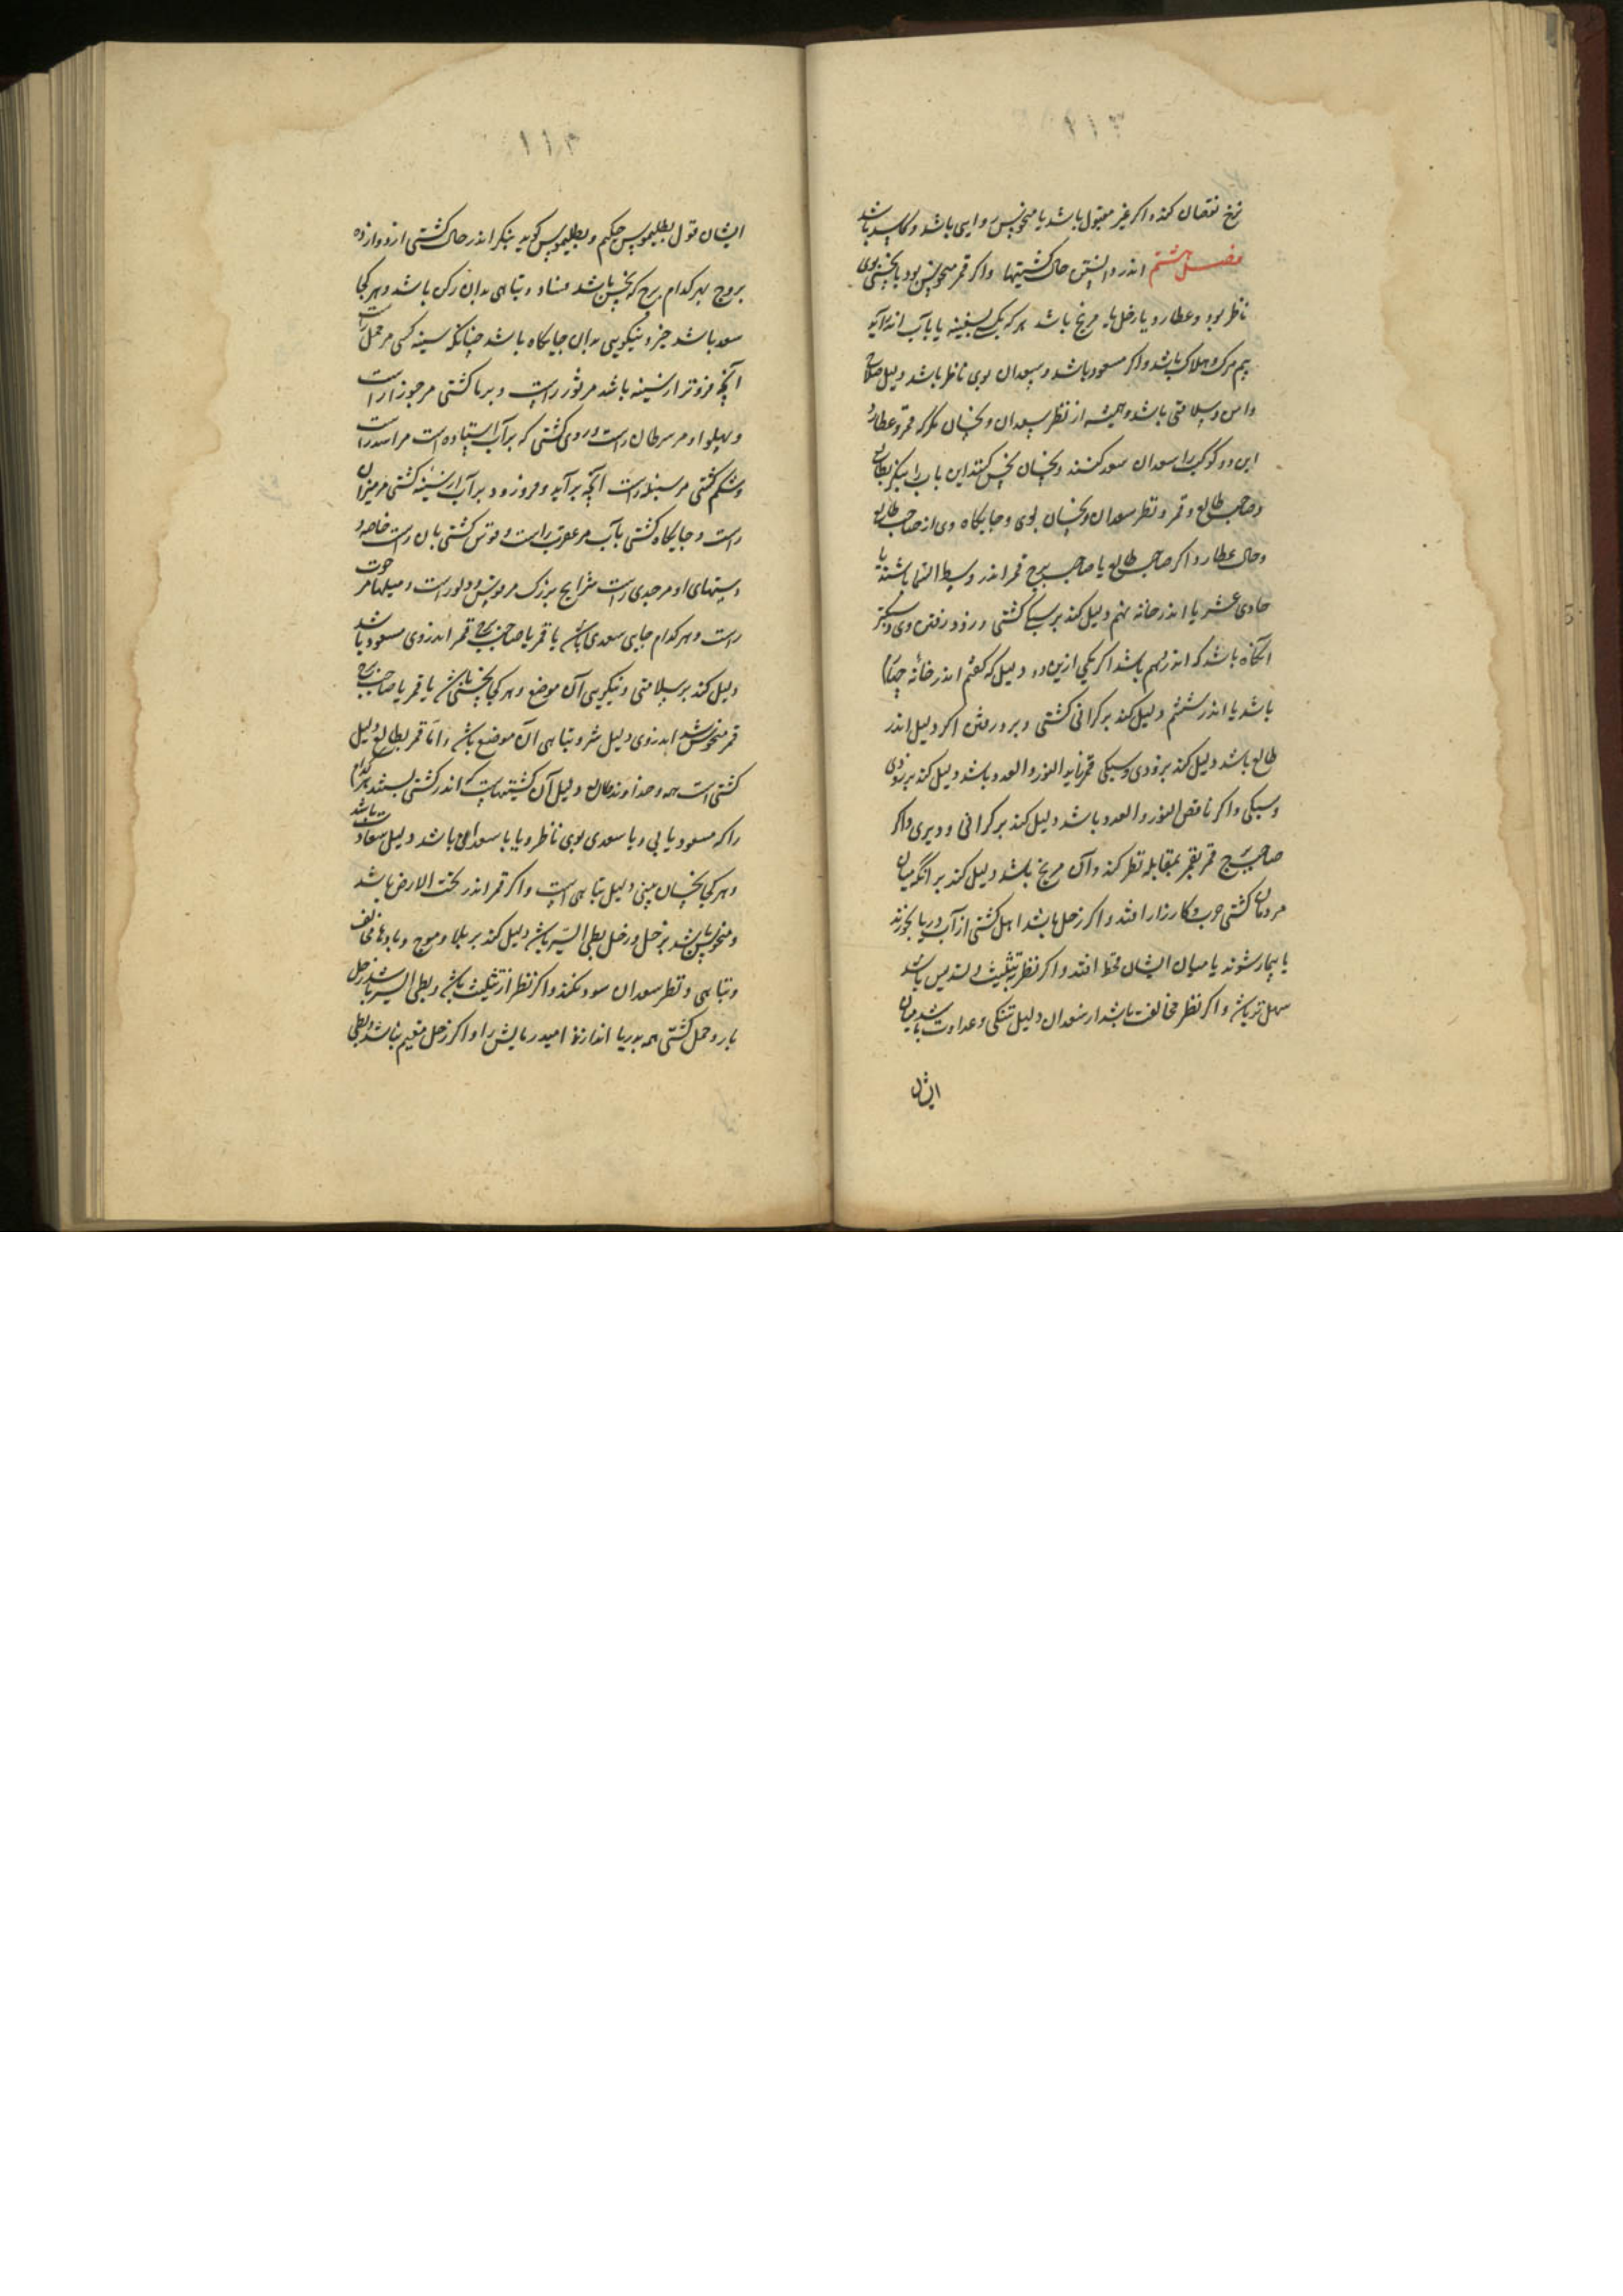 ۱۱۳
نرخ نقصان کند و اکر غیر مقبول باشد یا منحوس روایی باشد و کاسد باشد
فصل هشتم اندر دانستن حال کشتیها و اکر قمر منحوس بود یا نحسی بوی
ناظر بود و عطارد و یا زحل یا مریخ باشد هر که بکشتی نشیند یا بآب اندر آید
بیم مرک و هلاک باشد و اکر مسعود باشد و سعدان بوی ناظر باشد دلیل صلاح
و امن و سلامتی باشد و همیشه از نظر سعدان و نحسان نکر که قمر و عطارد
این دو کوکب را سعدان سعد کنند و نحسان نحس کنند این باب را بنکر بطالع
و صاحب طالع و قمر و نظر سعدان و نحسان بوی و جایکاه وی از صاحب طالع
و حال عطارد اکر صاحب طالع یا صاحب برج قمر اندر وسط السما باشند یا
حادی عشر یا اندر خانه نهم دلیل کند بر سبکی کشتی و زود رفتن وی و سبکتر
آنکاه باشد که اندر نهم باشد اکر یکی ازین دو دلیل که کفتم اندر خانه چهارم
باشد یا اندر ششم دلیل کند بر کرانی کشتی و بر دیر رفتن اکر دلیل اندر
طالع باشد دلیل کند بزودی و سبکی قمر زاید النور و العدد باشد دلیل کند بر زودی
و سبکی و اکر ناقص النور و العدد باشد دلیل کند بر کرانی و دیری و اکر
صاحب برج قمر بقمر بمقابله نظر کند و آن مریخ باشد دلیل کند بر آنکه میان
مردمان کشتی حرب و کارزار افتد و اکر زحل باشد اهل کشتی از آب دریا بخورند
یا بیمار شوند یا میان ایشان قحط افتد و اکر نظر تثلیث و تسدیس باشد
سهل تر باشد و اکر نظر مخالفت باشد از سعدان دلیل تنکی و عداوت باشد میان
ایشان
۱۱۴
ایشان قول بطلیموس حکیم و بطلیموس کوید بنکر اندر حال کشتی از دوازده
بروج بهر کدام برج که نحس باشد فساد و تباهی بدان رکن باشد و هر کجا
سعد باشد خیر و نیکویی بدان جایکاه باشد چنانکه سینه کشتی مر حمل راست
آنچه فروتر از سینه باشد مر ثور راست و بر ما کشتی مر جوزا راست
و پهلو او مر سرطان راست و روی کشتی که بر آب ایستاده است مر اسد راست
و شکم کشتی مر سنبله راست آنچه برآید و فرو رود بر آب از سینه کشتی مر میزان
راست و جایکاه کشتی بآب مر عقرب راست و قوس کشتی بان راست خاصه و
رسنهای او مر جدی راست شرایح بزرک مر و دلو راست و میلها مر حوت
راست و هر کدام جایی سعدی باشد یا قمر یا صاحب برج قمر اندر وی مسعود باشد
دلیل کند بر سلامتی و نیکویی آن موضع و هر کجا نحسی باشد یا قمر یا صاحب برج
قمر منحوس باشد اندر وی دلیل شر و تباهی آن موضع باشد و اما قمر بطالع دلیل
کشتی است همه و خداوند طالع دلیل آن کشتیهاست که اندر کشتی نشینند هر کدام
را که مسعود یابی و یا سعدی بوی ناظر و یا با سعدی باشد دلیل سعادت باشد
و هر کجا نحسان بینی دلیل تباهی است و اکر قمر اندر تحت الارض باشد
و منحوس باشد بزحل و زحل بطی السیر باشد دلیل کند بر بلا و موج و بادها مخالف
و تباهی و نظر سعدان سود نکند و اکر نظر از تثلیث باشد و بطی السیر باشد زحل
بار و حمل کشتی همه بدریا اندازند امید رهایش را و اکر زحل مقیم باشد و بطی